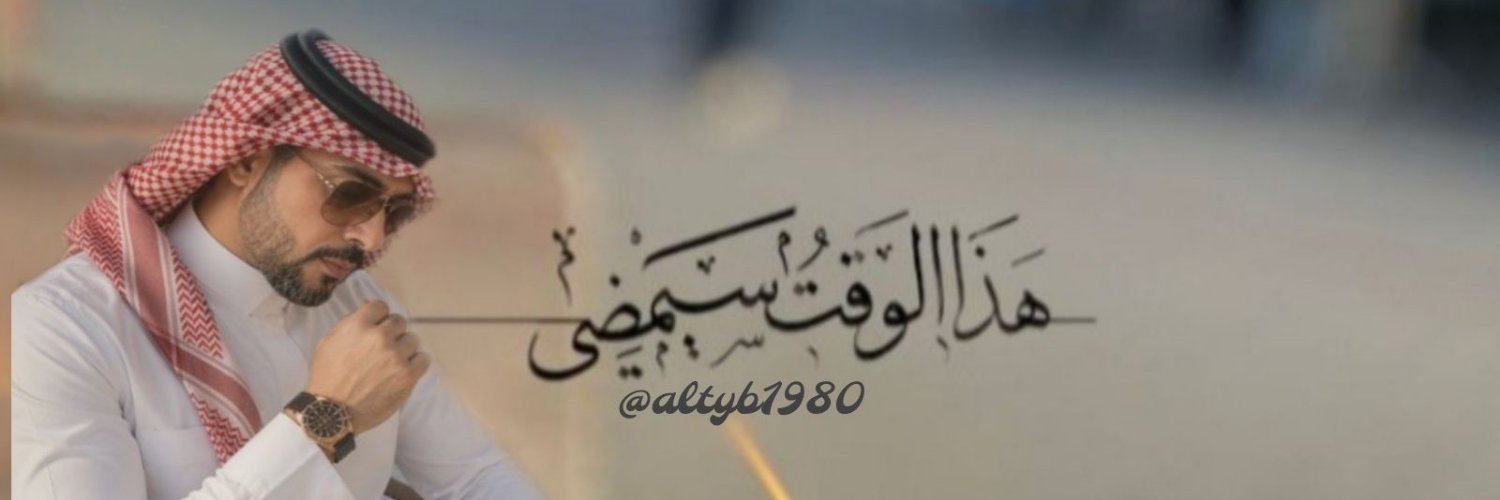 هَذَا الوَقتُ سَيَمضِي
@altyb1980